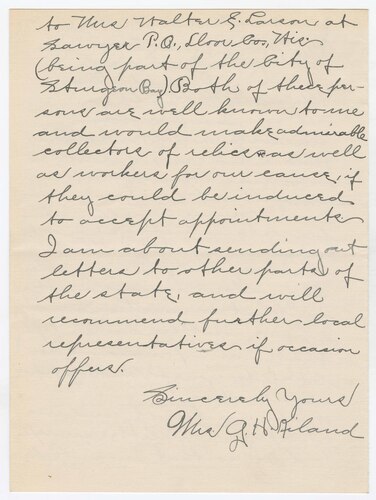 to Mrs Walter E. Larson at
Sawyer P.O., Door Co., Wis.
(being part of the City of
Sturgeon Bay) Both of these per-
sons are well known to me
and would make admirable
collectors of relics as well
as workers for our cause, if
they could be induced
to accept appointments
I am about sending out
letters to other parts of
the state, and will
recommend further local
representatives if occasion
offers.
Sincerely Yours
Mrs G. H.